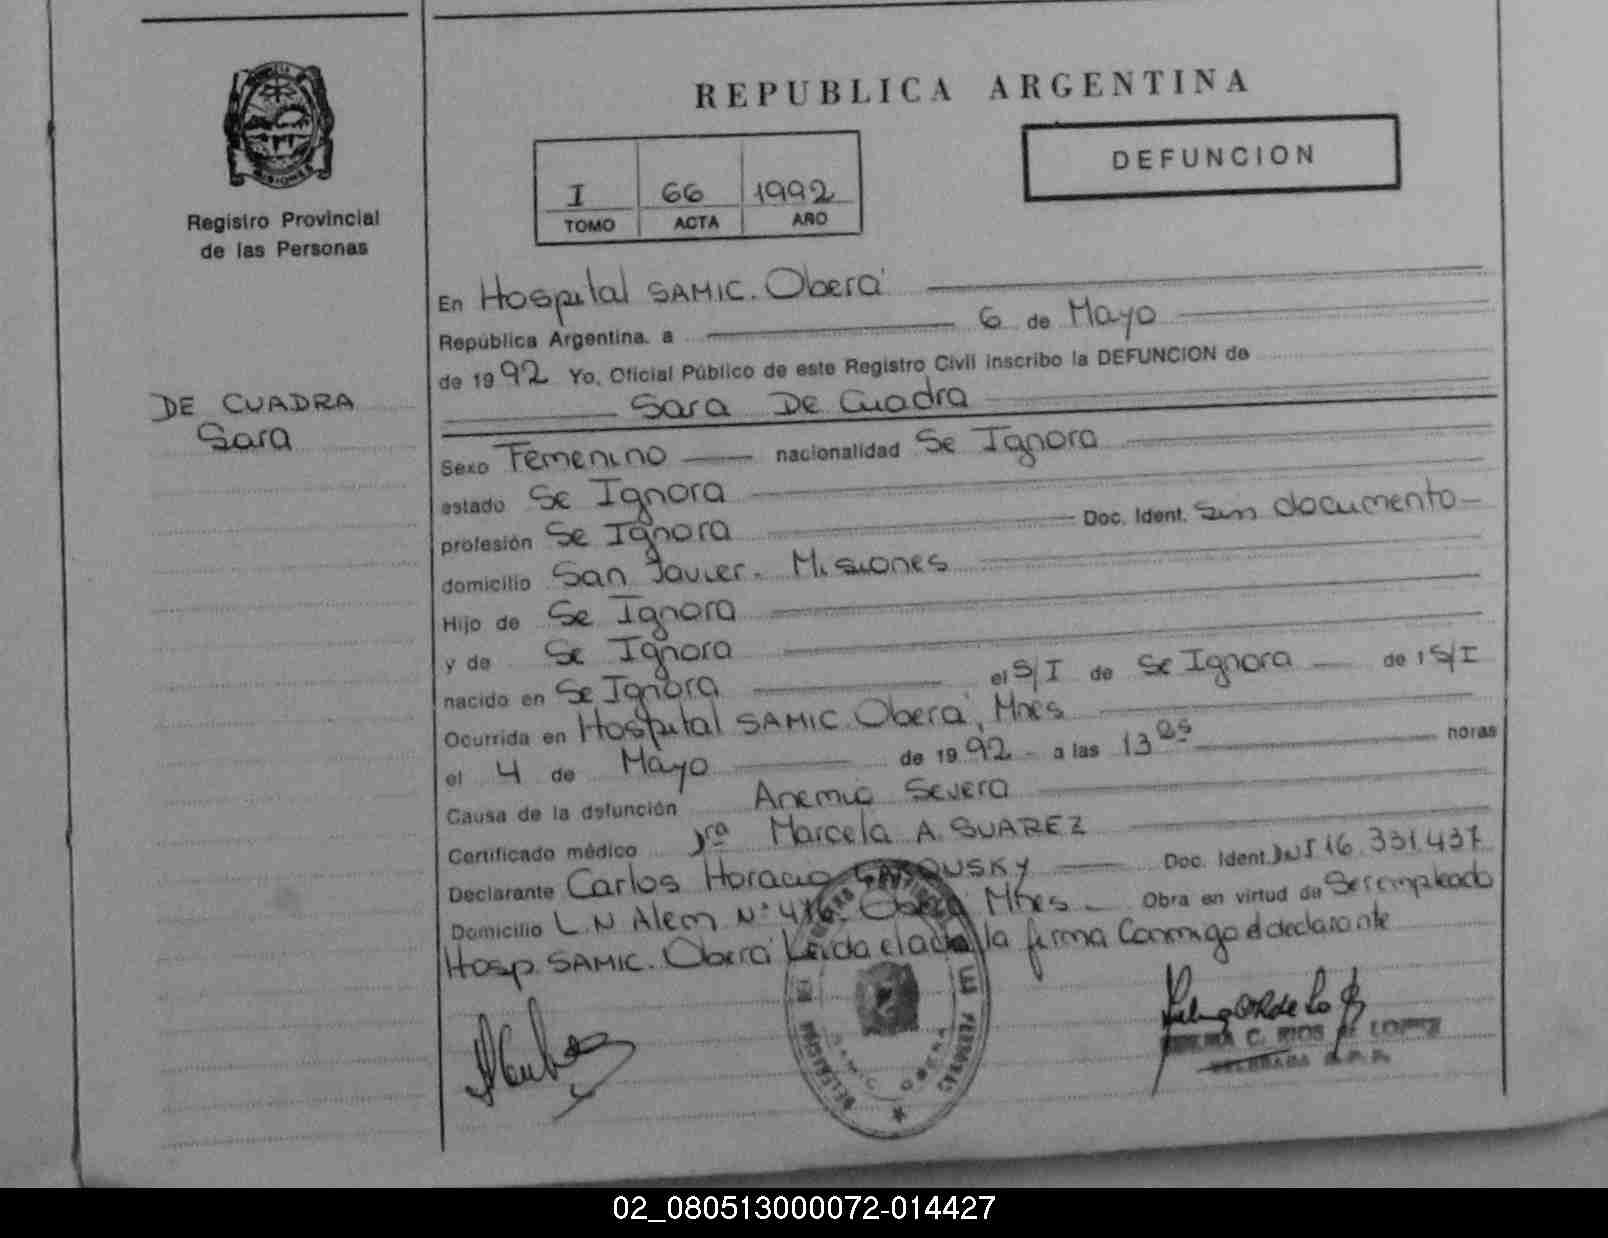 REPUBLICA ARGENTINA
DEFUNCION
I 66 1992
TOMO ACTA AÑO
MISIONES
Registro Provincial
de las Personas
DE CUADRA
Sara
En Hospital SAMIC. Oberá
República Argentina, a 6 de Mayo
de 1992 Yo, Oficial Público de este Registro Civil inscribo la DEFUNCION de
Sara De Cuadra
Sexo Femenino nacionalidad Se Ignora
estado Se Ignora
profesión Se Ignora Doc. Ident. Sin documento
domicilio San Javier. Misiones
Hijo de Se Ignora
y de Se Ignora
nacido en Se Ignora el S/I de Se Ignora de 1 S/I
Ocurrida en Hospital SAMIC Oberá, Mnes
el 4 de Mayo de 1992 a las 13 horas
Causa de la defunción Anemia Severa
Certificado médico Marcela A. SUAREZ
Declarante Carlos Horacio Doc. Ident. DNI 16.331.437
Domicilio L.N Alem Nº Oberá Mnes. Obra en virtud de Ser empleado
Hosp. SAMIC. Oberá Leida el acta la firma Conmigo el declarante
C. RIOS DE LOPEZ
SAMIC OBERA
02_080513000072-014427